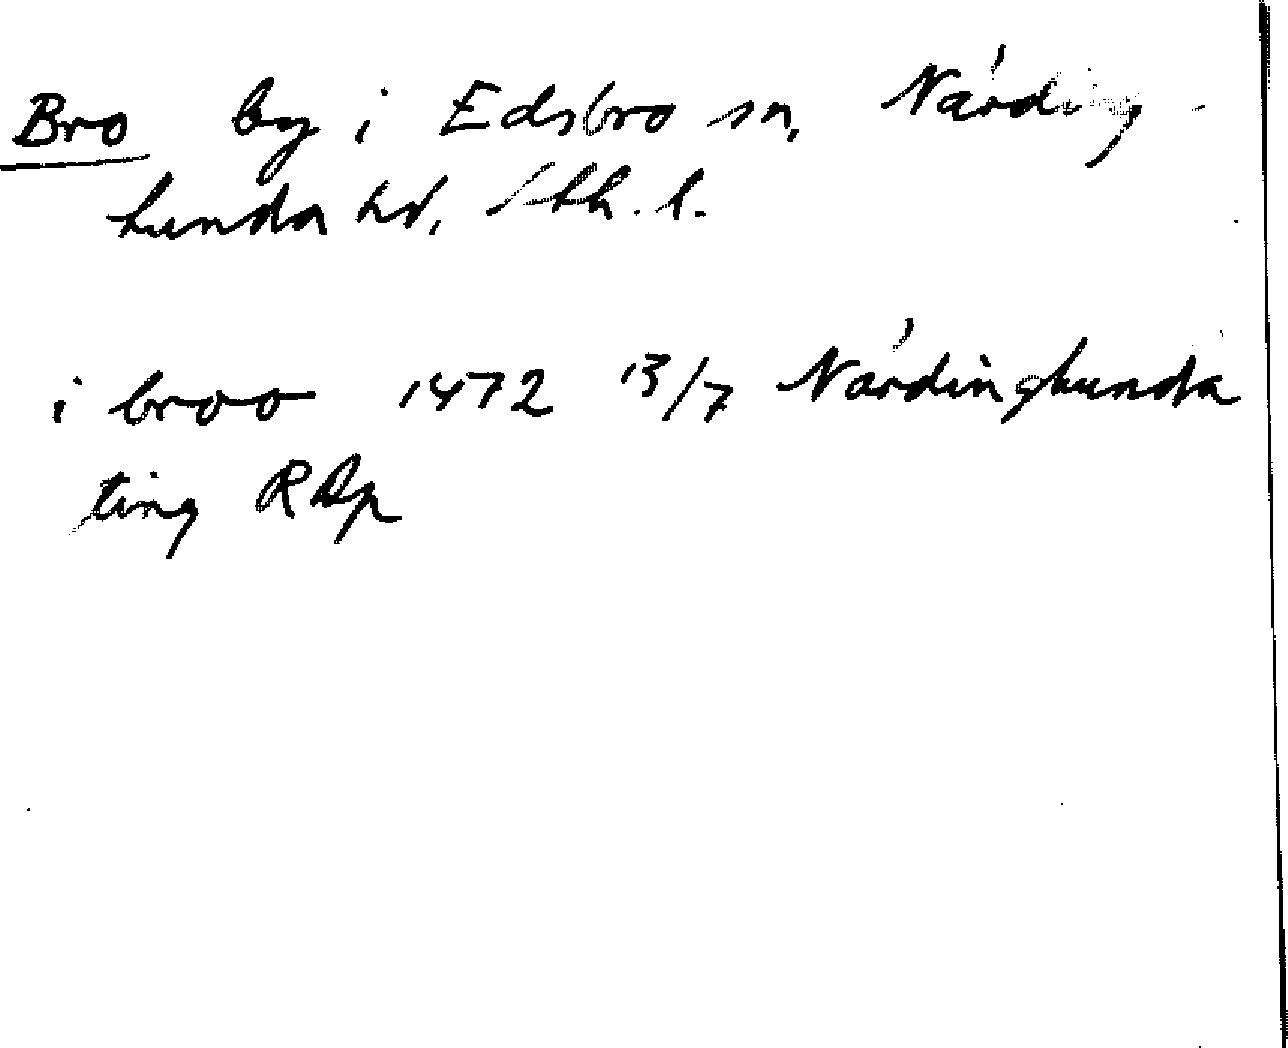 Bro by i Edsbro sn, Närding-
hunda hd, Sthh. l.
i broo 1472 13/7 Närdinghunda
ting RAp